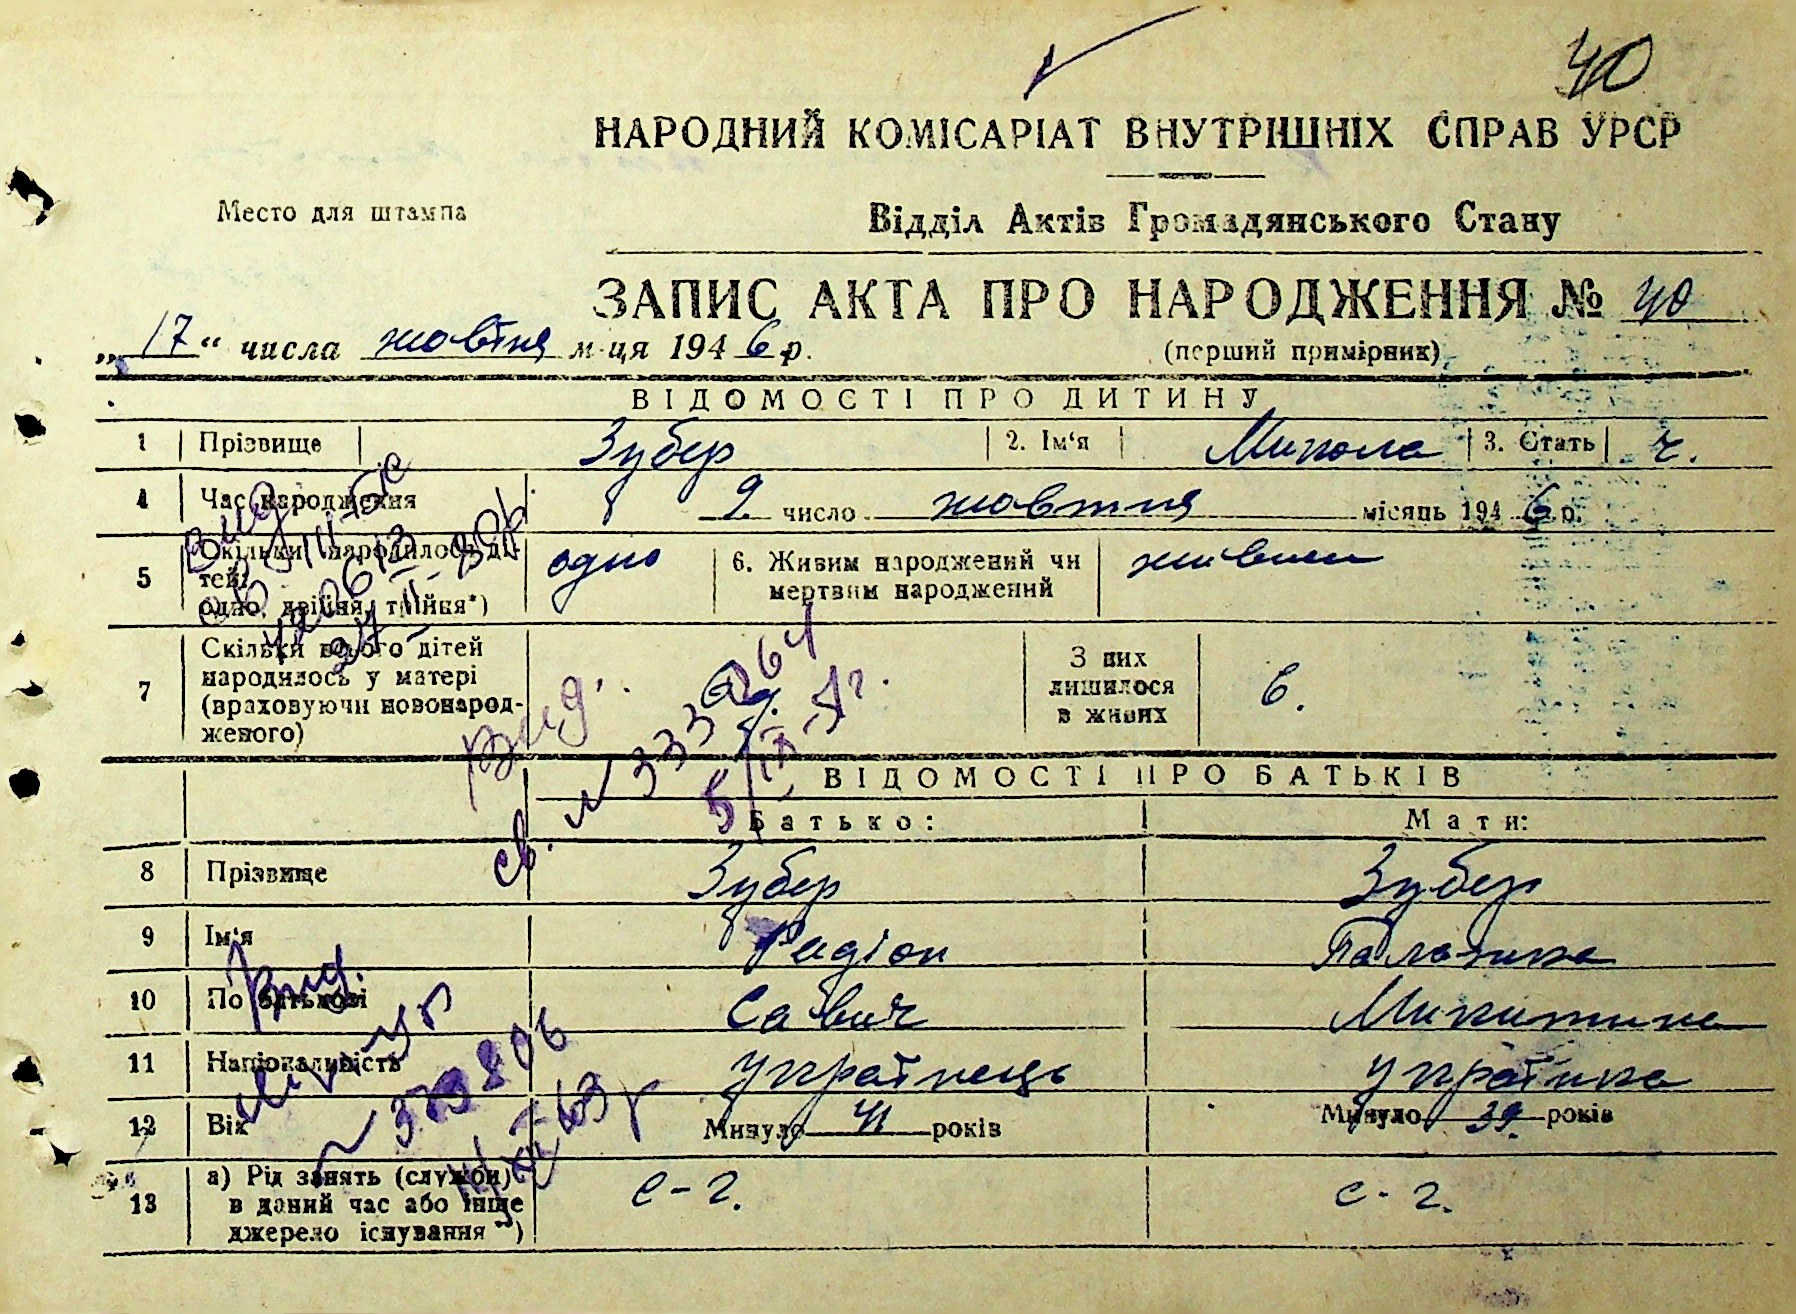 40
НАРОДНИЙ КОМІСАРІАТ ВНУТРІШНІХ СПРАВ УРСР
Место для штампа
Відділ Актів Громадянського Стану
ЗАПИС АКТА ПРО НАРОДЖЕННЯ № 40
„17“ числа жовтня м-ця 1946 р.
(перший примірник)
ВІДОМОСТІ ПРО ДИТИНУ
1 Прізвище Зубер 2. Ім‘я Микола 3. Стать ч.
4 Час народження 9 число жовтня місяць 1946 р.
5 Скільки народилось дітей: одно, двійня, трійня*) одно 6. Живим народжений чи мертвим народжений живим
7 Скільки всього дітей
народилось у матері
(враховуючи новонарод-
женого)
З них
лишилося
в живих
6.
Вид.
св. № 333
ВІДОМОСТІ ПРО БАТЬКІВ
Батько: Мати:
8 Прізвище Зубер Зубер
9 Ім‘я Радіон
10 По батькові Савич Микитина
11 Національність українець українка
12 Вік Минуло 41 років Минуло 39. років
13 а) Рід занять (служби)
в даний час або інше
джерело існування**)
с-г. с-г.
Вид.